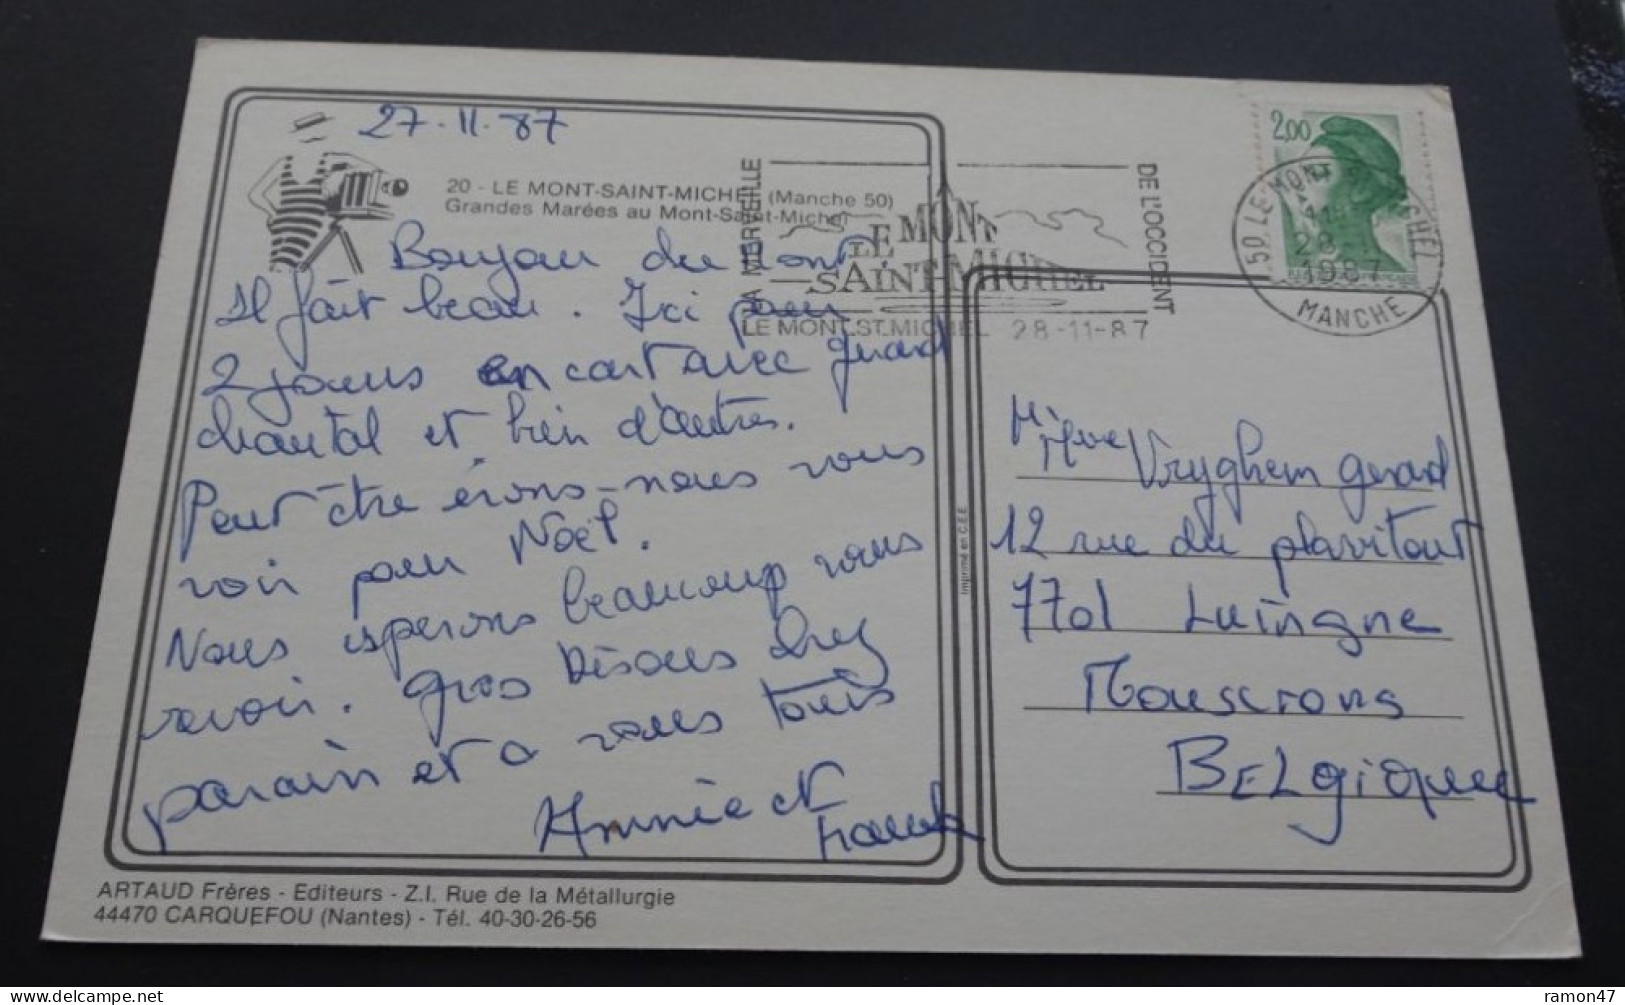 27.11.87
20 - LE MONT-SAINT-MICHEL (Manche 50)
Grandes Marées au Mont-Saint-Michel
Bonjour du Mont
Il fait beau. Ici pour
2 jours en car avec gerard
chantal et bien d'autres.
Peut être irons-nous vous
voir pour Noël.
Nous esperons beaucoup vous
revoir. gros bisous chez
parain et a vous tous
Annie et
Franck
ARTAUD Frères - Editeurs - Z.I. Rue de la Métallurgie
44470 CARQUEFOU (Nantes) - Tél. 40-30-26-56
Imprimé en C.E.E.
LA MERVEILLE
LE MONT
SAINT-MICHEL
DE L'OCCIDENT
LE MONT ST. MICHEL 28-11-87
2,00
50 LE MONT ST MICHEL
28
1987
MANCHE
Mr
Mme Vryghem gerard
12 rue du plavitout
7701 Luingne
Mouscrons
BELgique
ramon47